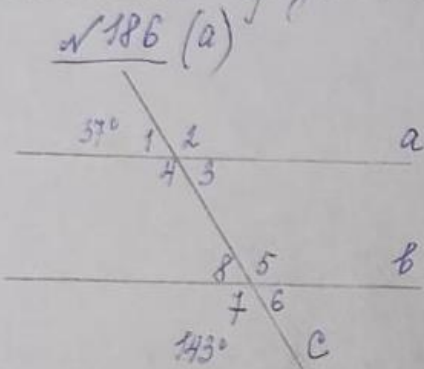 №186 (a)
37° 1 2 a
4 3
8 5 b
7 6
143° C